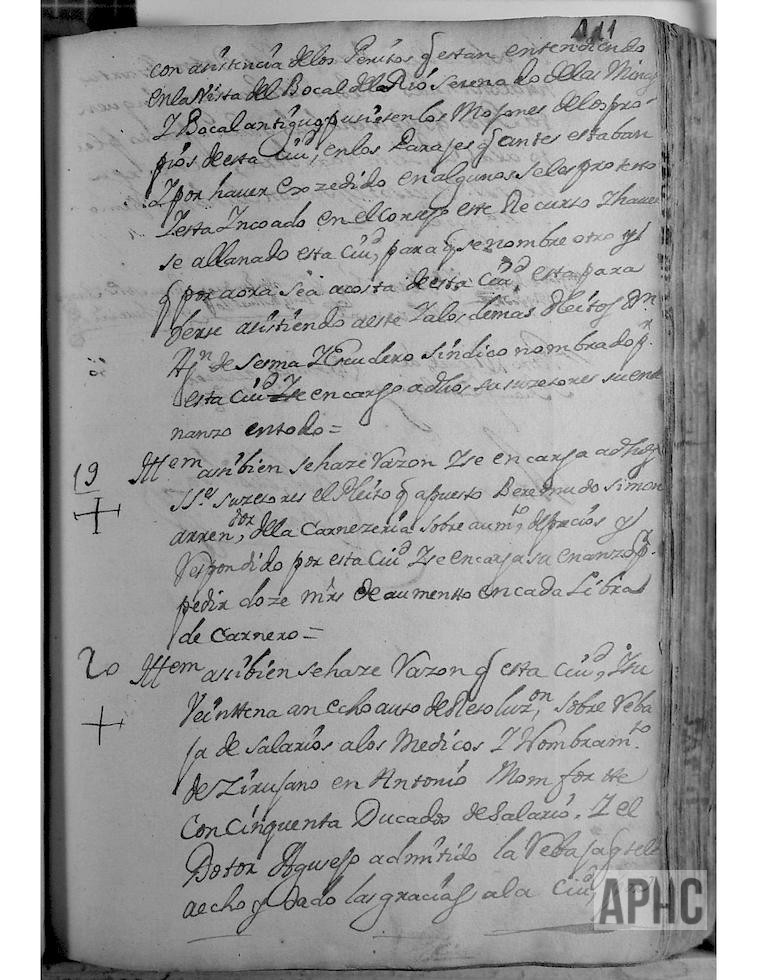 111
con asistencia delos Peritos q estan entendiendo
en la Vista del Bocal del Rio Serenado de las Minas
Y Bocal antiguo, pusiesen los Mojones de los pro-
pios de esta Ciud, en los Parajes q antes estaban
Y por hauer exzedido en algunos se les protesto
Y esta Incoado en el Consejo este Recurso Y hauer
se allanado esta Ciud, para q se nombre otro y
q por aora sea acosta de esta Ciud, esta para
derse asistiendo a este Y a los demas Pleitos Dn
de Sesma Y Escudero Sindico nombrado pr
esta Ciud Y se encarga a dhos susuzesores su ene
nanzo entodo =
19
Ittem asibien se haze Razon Y se encarga a dhos
SSes suzesores el Pleito q apuesto Beremudo Simon
arrendor, de la Carnezeria sobre aumto, de precios y
Respondido por esta Ciud Y se encarga su enanzo, p.
pedir doze mrs de aumentto en cada Libra
de Carnero =
20
Ittem asibien se haze Razon q esta Ciud, Y su
Veinttena an echo auto de Resoluzon, sobre Reba
ja de salarios a los Medicos Y Nombramto
de Zirujano en Antonio Monfortte
Con Cinquenta Ducados de Salario. Y el
Dotor admitido la Rebaja q sele
aecho y Dado las gracias a la Ciud
APHC